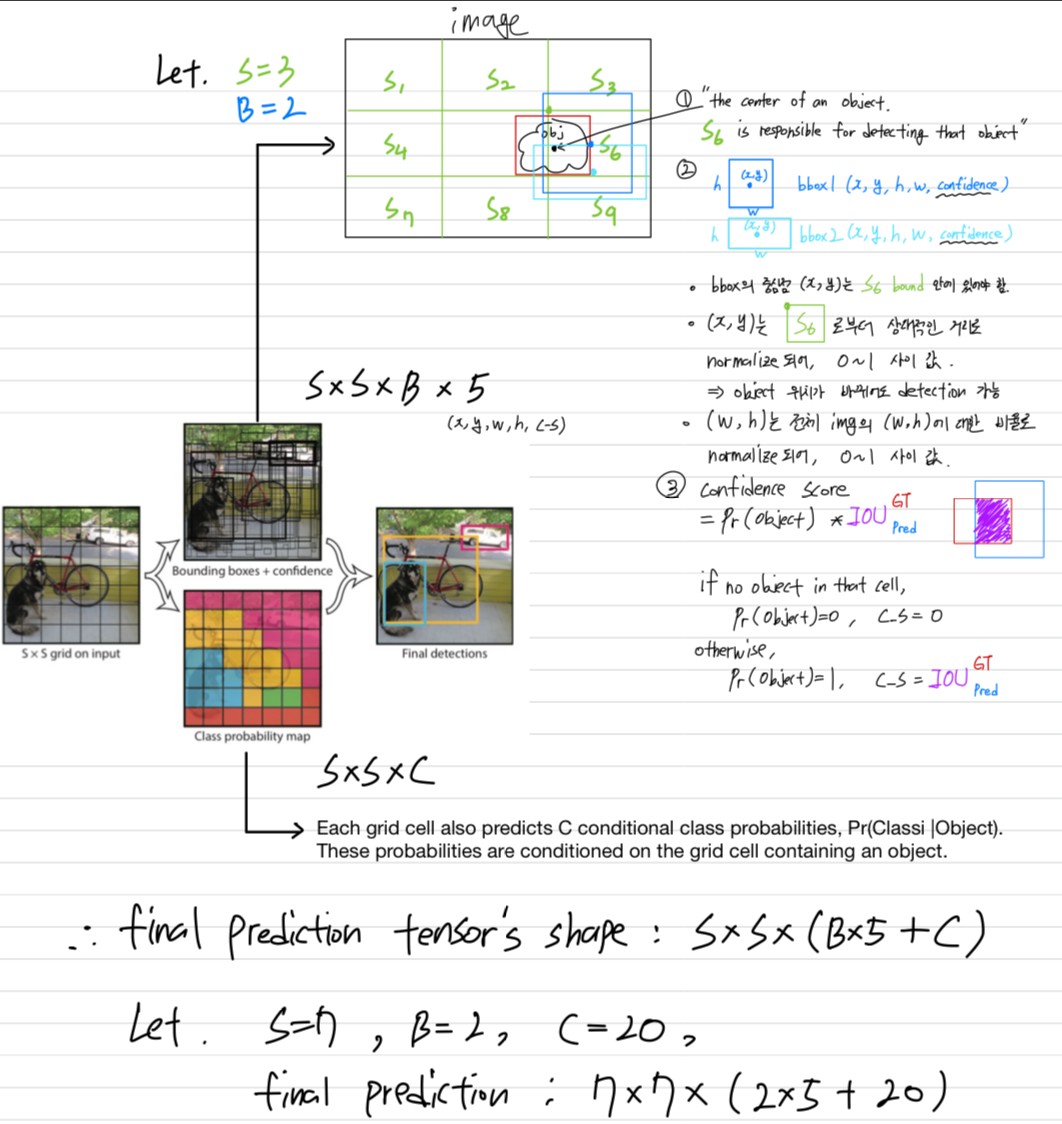 image
Let. S=3
B=2
S1 S2 S3
S4 obj S6
S7 S8 S9
① "the center of an object.
S6 is responsible for detecting that object"
② h (x,y) w bbox1 (x, y, h, w, confidence)
h (x,y) w bbox2 (x, y, h, w, confidence)
• bbox의 중심점 (x, y)는 S6 bound 안에 있어야 함.
• (x, y)는 S6 로부터 상대적인 거리로
normalize 되어, 0~1 사이 값.
⇒ object 위치가 바뀌어도 detection 가능
• (w, h)는 전체 img의 (w, h)에 대한 비율로
normalize 되어, 0~1 사이 값.
③ Confidence Score
= Pr(Object) * IOU GT Pred
if no object in that cell,
Pr(Object)=0, C_S = 0
otherwise,
Pr(Object)=1, C_S = IOU GT Pred
S×S×B × 5
(x, y, w, h, C-S)
Bounding boxes + confidence
S × S grid on input
Final detections
Class probability map
S×S×C
Each grid cell also predicts C conditional class probabilities, Pr(Classi |Object).
These probabilities are conditioned on the grid cell containing an object.
∴ final prediction tensor's shape : S×S×(B×5 +C)
Let. S=7, B=2, C=20,
final prediction : 7×7×(2×5 + 20)